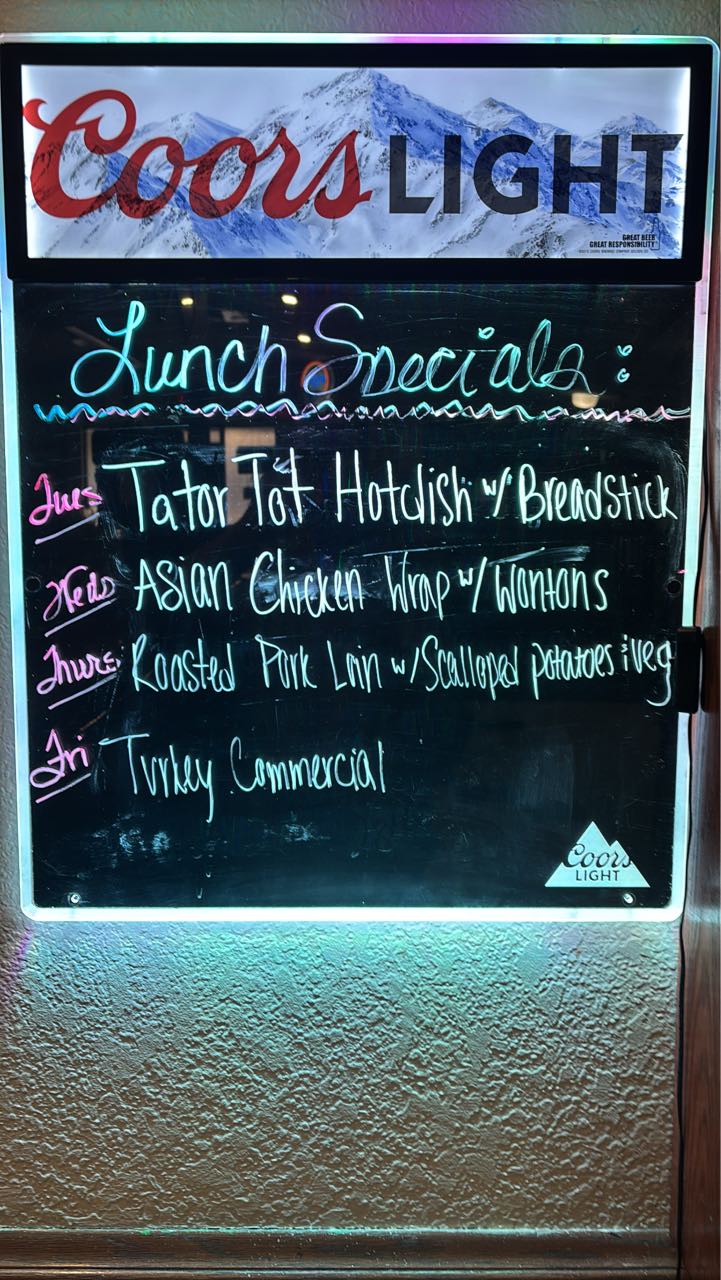 Coors LIGHT
GREAT BEER
GREAT RESPONSIBILITY
Lunch Specials:
Tues Tator Tot Hotdish w/ Breadstick
Weds Asian Chicken Wrap w/ Wontons
Thurs Roasted Pork Loin w/ Scalloped potatoes & veg
Fri Turkey Commercial
Coors
LIGHT